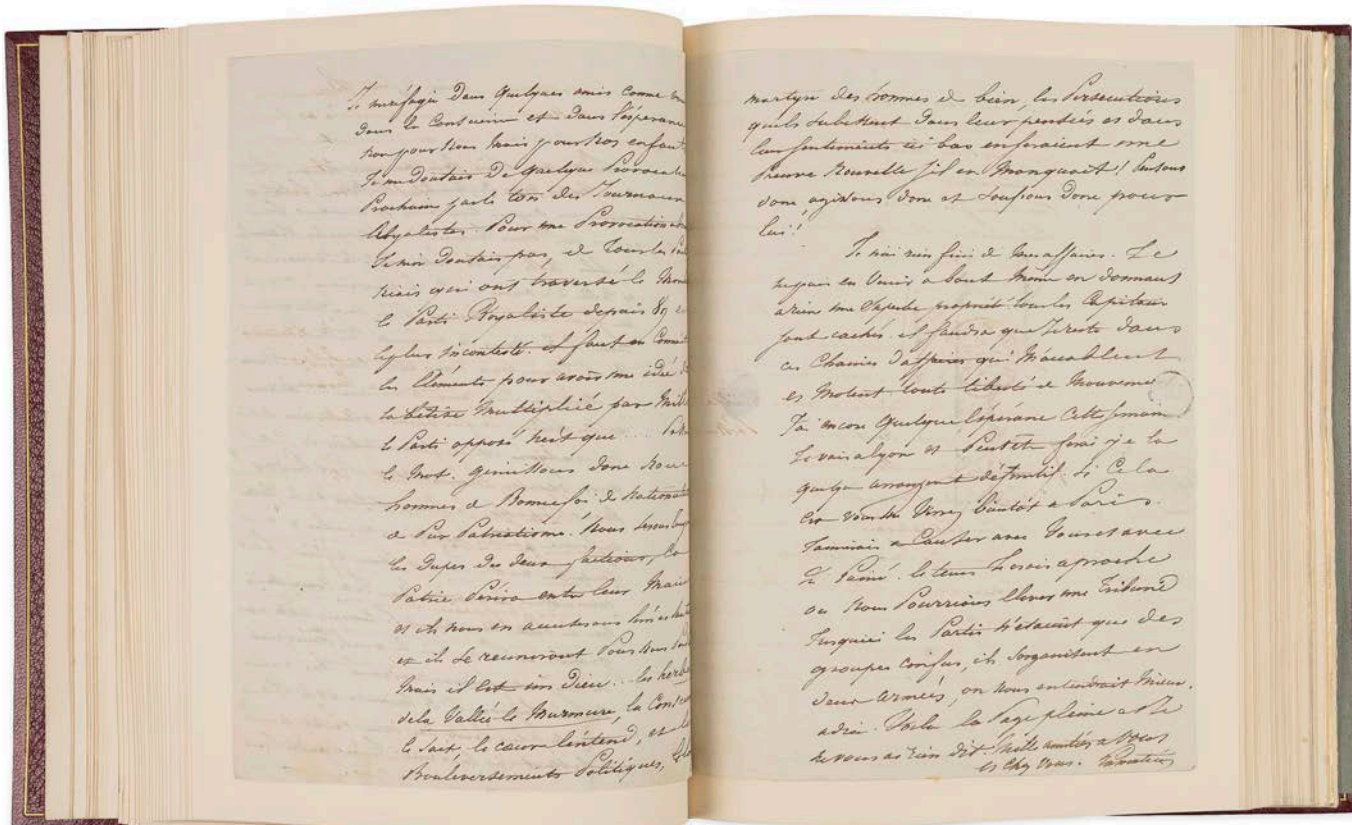 Je me réfugie dans quelques amis comme
dans la Conscience et dans l'espérance
non pour nous mais pour nos enfants
Je me doutais de quelque Provocation
Prochaine par le ton des Journaux
Royalistes. Pour une Provocation
Je n'en doutais pas, de tous les
niais qui ont traversé le Monde
le Parti Royaliste depuis 89 est
le plus incontesté. il faut en
les Eléments pour avoir une idée de
la bêtise multiplié par
le Parti opposé n'est que ....
le mot. Gémissons donc nous
hommes de Bonne foi de
de Pur Patriotisme. Nous serons
les Dupes des deux factions, la
Patrie Périra entre leur Mains
et ils nous en accuserons
et ils se reuniront Pour nous
Mais il est un Dieu... les herbes
de la Vallée le Murmure, la
le sait, le cœur l'entend, et les
Bouleversements Politiques,
martyre des hommes de bien, les Persecutions
quils subissent dans leur pensées et dans
leur sentiments ici bas enferaient une
Preuve Nouvelle s'il en Manquait! Pensons
donc agissons donc et souffrons donc pour
lui!
Je n'ai rien fini de mes affaires. Je
ne puis en Venir a bout même en donnant
a rien une Superbe propriété tous les Capitaux
sont cachés. il faudra que Je reste dans
ces Chaines d'affaires qui M'accablent
et M'otent toute liberté de Mouvement
J'ai encore quelque Espérance Cette semaine
Je vais a lyon et Peutêt ferai-je la
quelque arrangement définitif. Si Cela
est vous me Verrez bientôt a Paris.
J'aimerais a Causer avec Vous et avec
le tems Je crois aproche
ou Nous Pourrions Elever une Tribune
Jusquici les Partis n'étaient que des
groupes confus, ils s'organisent en
deux armées, on nous entendrait Mieux.
adieu. Voila la Page pleine et Je
ne vous ai rien dit. Mille amitiés a Vous
et Chez Vous. Lamartine